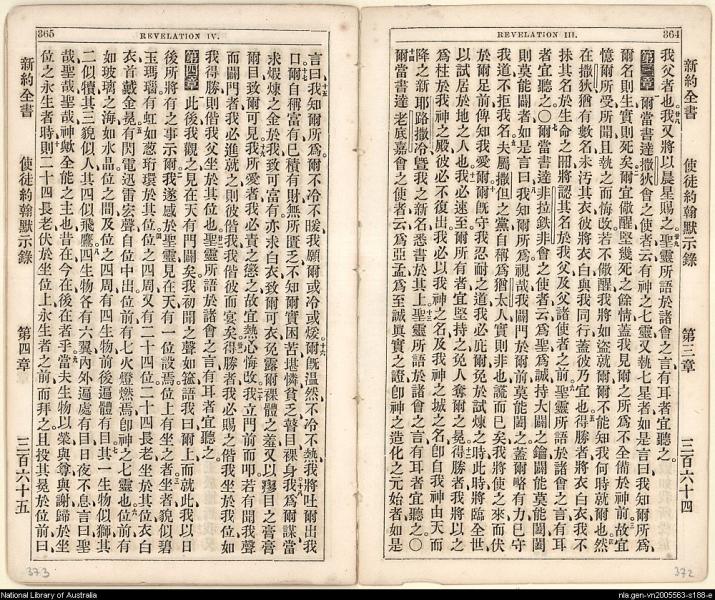 REVELATION III.
364
新約全書 使徒約翰默示錄 第三章 三百六十四
我父者也我又將以晨星賜之聖靈所語於諸會之言有耳者宜聽之
第三章 爾當書達撒狄會之使者云有神之七靈又執七星者如是言曰我知爾所爲
爾名則生實則死矣爾宜儆醒堅幾死之餘情蓋我見爾之所爲不全備於神前故宜
憶爾所受所聞且執之而悔改若不儆醒我將如盜就爾爾不能知我何時就爾也然
在撒狄猶有數名未污其衣彼將衣白與我同行蓋彼乃宜也得勝者將衣白衣我不
抹其名於生命之冊將認其名於我父及父諸使者之前聖靈所語於諸會之言有耳
者宜聽之○爾當書達非拉鉄非會之使者云爲聖爲誠持大闢之鑰闢莫能闔闔
則莫能闢者如是言曰我知爾所爲視哉我闢門於爾前莫能闔之蓋爾略有力已守
我道不拒我名夫屬撒但之黨自稱爲猶太人實則非也謊而已矣我將使之來而伏
於爾足前俾知我愛爾爾旣守我忍耐之道我必庇爾免於試煉之時此時將臨全世
以試居於地之人也我必速至爾所有者宜堅持之免人奪爾之冕得勝者我將以之
爲柱於我神之殿彼必不復出我又以我神之名及我神之城之名卽自我神由天而
降之新耶路撒冷曁我之新名悉書於其上聖靈所語於諸會之言有耳者宜聽之○
爾當書達老底嘉會之使者云爲亞孟爲至誠眞實之證卽神之造化之元始者如是
372
365
REVELATION IV.
言曰我知爾所爲爾不冷不暖我願爾或冷或煖爾旣溫然不冷不熱我將吐爾出我
口爾自稱富有已積有財無所匱乏不知爾實困苦堪憐貧乏瞽目裸身我爲爾謀當
求煆煉之金於我致可富有亦求白衣致可衣免露爾裸體之羞又以瘳目之膏膏
爾目致爾可見我所愛者我必責之懲之故宜熱心悔改我立門前而叩若有聞我聲
而闢門者我必進就之則彼偕我我偕彼而宴矣得勝者我必賜之偕我坐我位如
我得勝則偕我父坐於其位也聖靈所語於諸會之言有耳者宜聽之
第四章 此後我觀之見在天有門闢矣我初聞之聲如語我曰爾上而就此我以日
後所將有之事示爾我遂感於聖靈見在天有一位設焉位上有坐之者坐者貌似碧
玉瑪瑙有虹如葱珩環於其位位之四周又有二十四位二十四長老坐於其位衣白
衣首戴金冕有閃電迅雷宏聲自位中出位前有七火燈燃焉卽神之七靈也位前有
如玻璃之海如水晶位之間及位之四周有四生物前後遍體有目其一生物似獅其
二似犢其三貌似人其四似飛鷹四生物各有六翼內外遍處有目日夜不息言曰聖
哉聖哉聖哉神歟全能之主也昔在今在後在者乎當夫生物以榮與尊與謝歸於坐
位之永生者時則二十四長老伏於坐位上永生者之前而拜之且投其冕於位前曰
新約全書 使徒約翰默示錄 第四章 三百六十五
373
National Library of Australia
nla.gen-vn2005563-s188-e